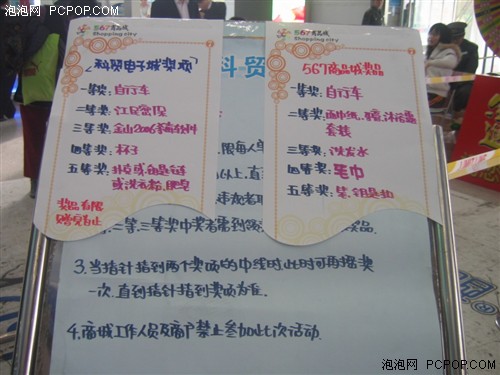 泡泡网 PCPOP.COM
567商品城
Shopping city
科贸电子城奖项
一等奖:自行车
二等奖:江民杀毒
三等奖:金山2006杀毒软件
四等奖:杯子
五等奖:扑克或钥匙链
或洗衣粉、肥皂
奖品有限
赠完为止
567商品城
Shopping city
567商品城奖品
一等奖:自行车
二等奖:
套装
三等奖:洗发水
四等奖:毛巾
五等奖:笔、钥匙扣
科贸
限每人
以上,直
二等、三等奖中奖者需到领
奖品.
3.当指针指到两个奖项的中线时此时可再摇奖
一次,直到指针指到奖项为准.
4.商城工作人员及商户禁止参加此次活动.
泡泡网 PCPOP.COM